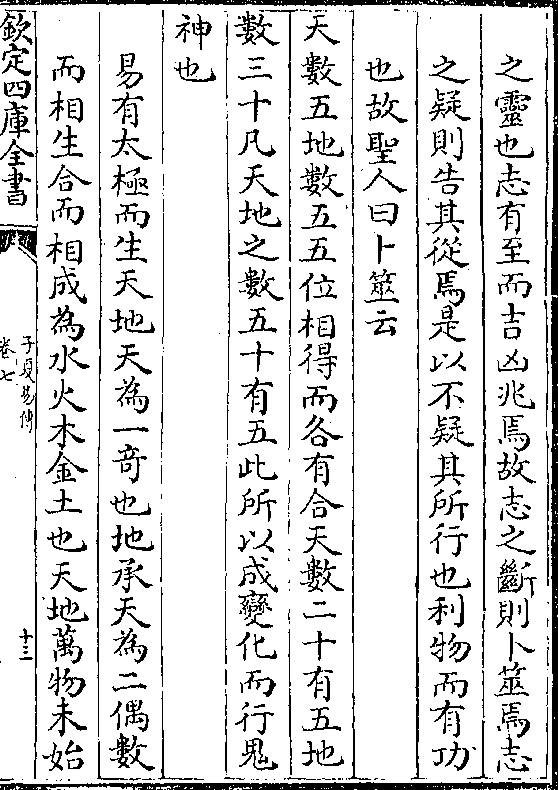 之靈也志有至而吉凶兆焉故志之斷則卜筮焉志
之疑則告其從焉是以不疑其所行也利物而有功
也故聖人曰卜筮云
天數五地數五五位相得而各有合天數二十有五地
數三十凡天地之數五十有五此所以成變化而行鬼
神也
易有太極而生天地天為一奇也地承天為二偶數
而相生合而相成為水火木金土也天地萬物未始
欽定四庫全書
子夏易傳
卷七
十三